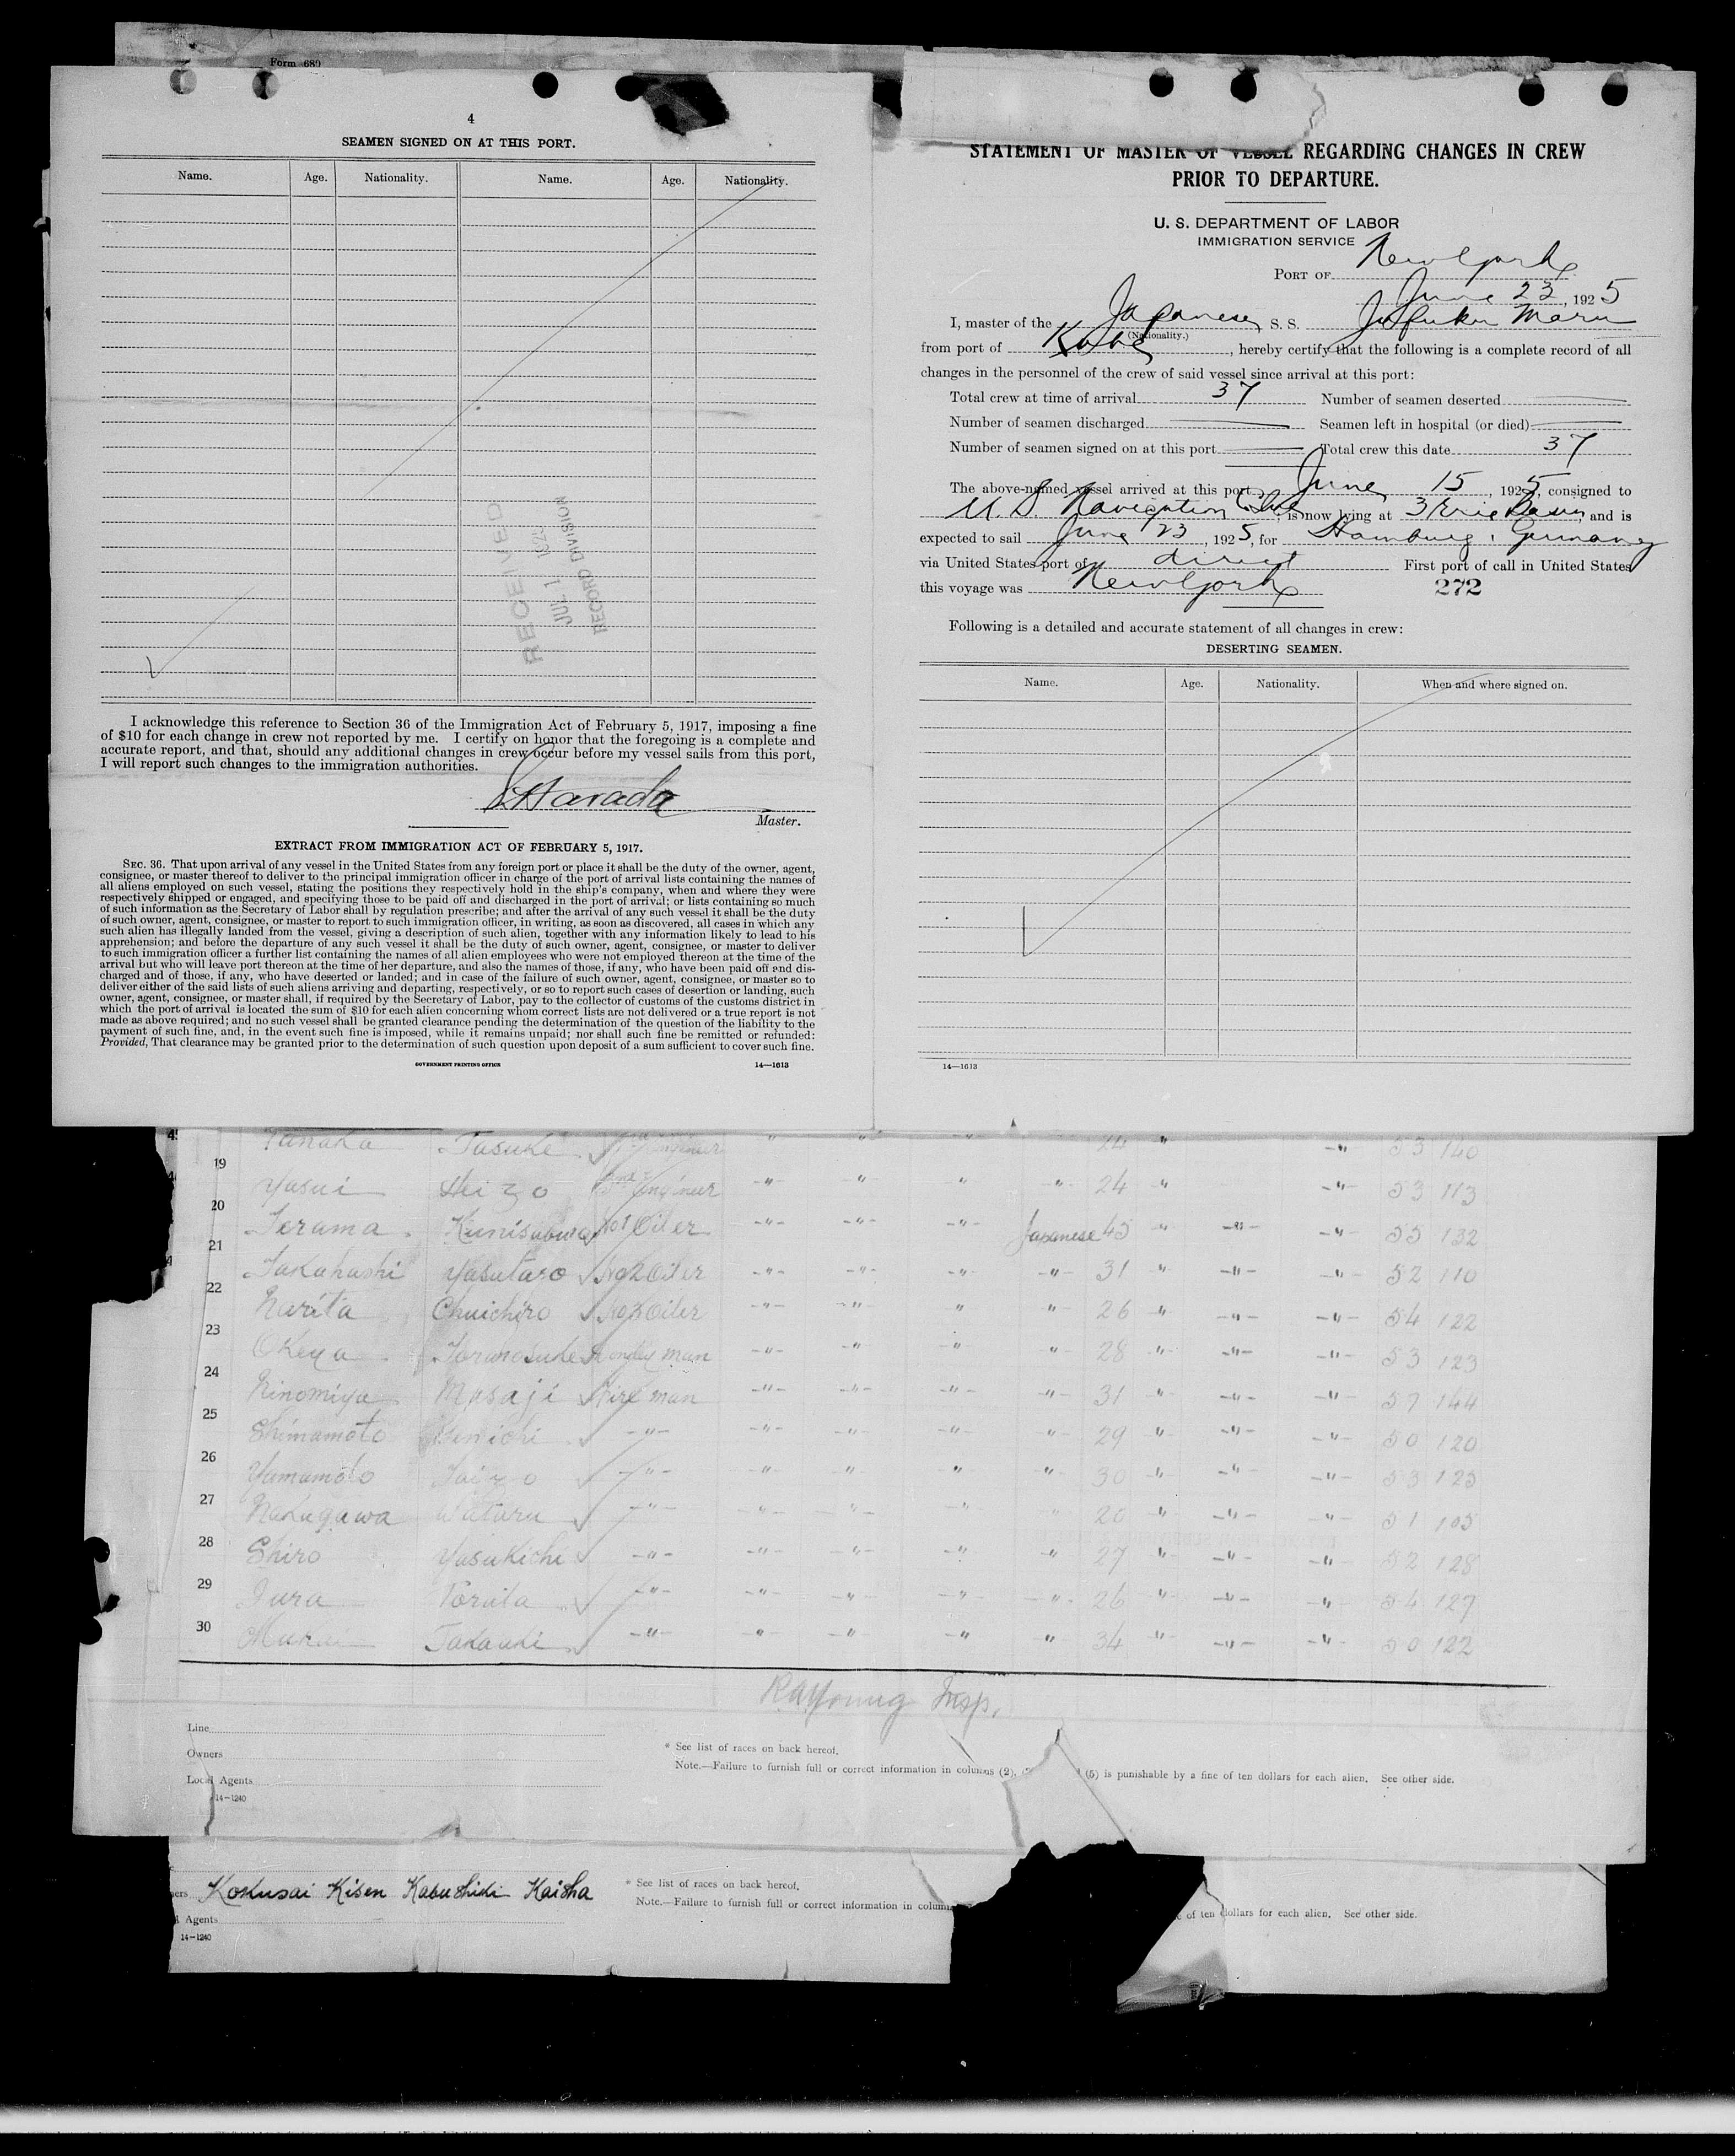 Form 689
4
SEAMEN SIGNED ON AT THIS PORT.
Name. Age. Nationality. Name. Age. Nationality.
RECEIVED
JUL 1 1925
RECORD DIVISION
I acknowledge this reference to Section 36 of the Immigration Act of February 5, 1917, imposing a fine
of $10 for each change in crew not reported by me. I certify on honor that the foregoing is a complete and
accurate report, and that, should any additional changes in crew occur before my vessel sails from this port,
I will report such changes to the immigration authorities.
Harada
Master.
EXTRACT FROM IMMIGRATION ACT OF FEBRUARY 5, 1917.
SEC. 36. That upon arrival of any vessel in the United States from any foreign port or place it shall be the duty of the owner, agent,
consignee, or master thereof to deliver to the principal immigration officer in charge of the port of arrival lists containing the names of
all aliens employed on such vessel, stating the positions they respectively hold in the ship's company, when and where they were
respectively shipped or engaged, and specifying those to be paid off and discharged in the port of arrival; or lists containing so much
of such information as the Secretary of Labor shall by regulation prescribe; and after the arrival of any such vessel it shall be the duty
of such owner, agent, consignee, or master to report to such immigration officer, in writing, as soon as discovered, all cases in which any
such alien has illegally landed from the vessel, giving a description of such alien, together with any information likely to lead to his
apprehension; and before the departure of any such vessel it shall be the duty of such owner, agent, consignee, or master to deliver
to such immigration officer a further list containing the names of all alien employees who were not employed thereon at the time of the
arrival but who will leave port thereon at the time of her departure, and also the names of those, if any, who have been paid off and dis-
charged and of those, if any, who have deserted or landed; and in case of the failure of such owner, agent, consignee, or master so to
deliver either of the said lists of such aliens arriving and departing, respectively, or so to report such cases of desertion or landing, such
owner, agent, consignee, or master shall, if required by the Secretary of Labor, pay to the collector of customs of the customs district in
which the port of arrival is located the sum of $10 for each alien concerning whom correct lists are not delivered or a true report is not
made as above required; and no such vessel shall be granted clearance pending the determination of the question of the liability to the
payment of such fine, and, in the event such fine is imposed, while it remains unpaid; nor shall such fine be remitted or refunded:
Provided, That clearance may be granted prior to the determination of such question upon deposit of a sum sufficient to cover such fine.
GOVERNMENT PRINTING OFFICE 14—1613
STATEMENT OF MASTER OF VESSEL REGARDING CHANGES IN CREW
PRIOR TO DEPARTURE.
U. S. DEPARTMENT OF LABOR
IMMIGRATION SERVICE
PORT OF New York
June 23, 1925
I, master of the Japanese S. S. Jufuku Maru
(Nationality.)
from port of Kobe, hereby certify that the following is a complete record of all
changes in the personnel of the crew of said vessel since arrival at this port:
Total crew at time of arrival 37 Number of seamen deserted
Number of seamen discharged Seamen left in hospital (or died)
Number of seamen signed on at this port Total crew this date 37
The above-named vessel arrived at this port June 15, 1925, consigned to
U. S. Navigation Co, is now lying at 3 Erie Basin, and is
expected to sail June 23, 1925, for Hamburg, Germany
via United States port of direct First port of call in United States
this voyage was New York 272
Following is a detailed and accurate statement of all changes in crew:
DESERTING SEAMEN.
Name. Age. Nationality. When and where signed on.
14—1613
Tanaka Tasuke Engineer " " " 24 " " 53 140
19 Yasui Heizo Engineer " " " " 24 " " 53 113
20 Terama Kunisaburo No1 Oiler " " " Japanese 45 " " " 55 132
21 Takahashi Yasutaro No2 Oiler " " " " 31 " " " 52 110
22 Narita Chuichiro No3 Oiler " " " " 26 " " " 54 122
23 Okeya Toranosuke Donkey man " " " " 28 " " " 53 123
24 Ninomiya Masaji Fire man " " " " 31 " " " 57 144
25 Shimamoto Kenichi " " " " " 29 " " " 50 120
26 Yamamoto Taizo " " " " " 30 " " " 53 125
27 Nakagawa Wataru " " " " " 20 " " " 51 105
28 Shiro Yasukichi " " " " " 27 " " " 52 128
29 Iura Torata " " " " " 26 " " " 54 127
30 Mukai Takauki " " " " " 34 " " " 50 122
Young Insp.
Line
Owners
Local Agents
14—1240
* See list of races on back hereof.
Note.—Failure to furnish full or correct information in columns (2), (5) is punishable by a fine of ten dollars for each alien. See other side.
Kokusai Kisen Kabushiki Kaisha
Agents
14—1240
* See list of races on back hereof.
Note.—Failure to furnish full or correct information in
of ten dollars for each alien. See other side.